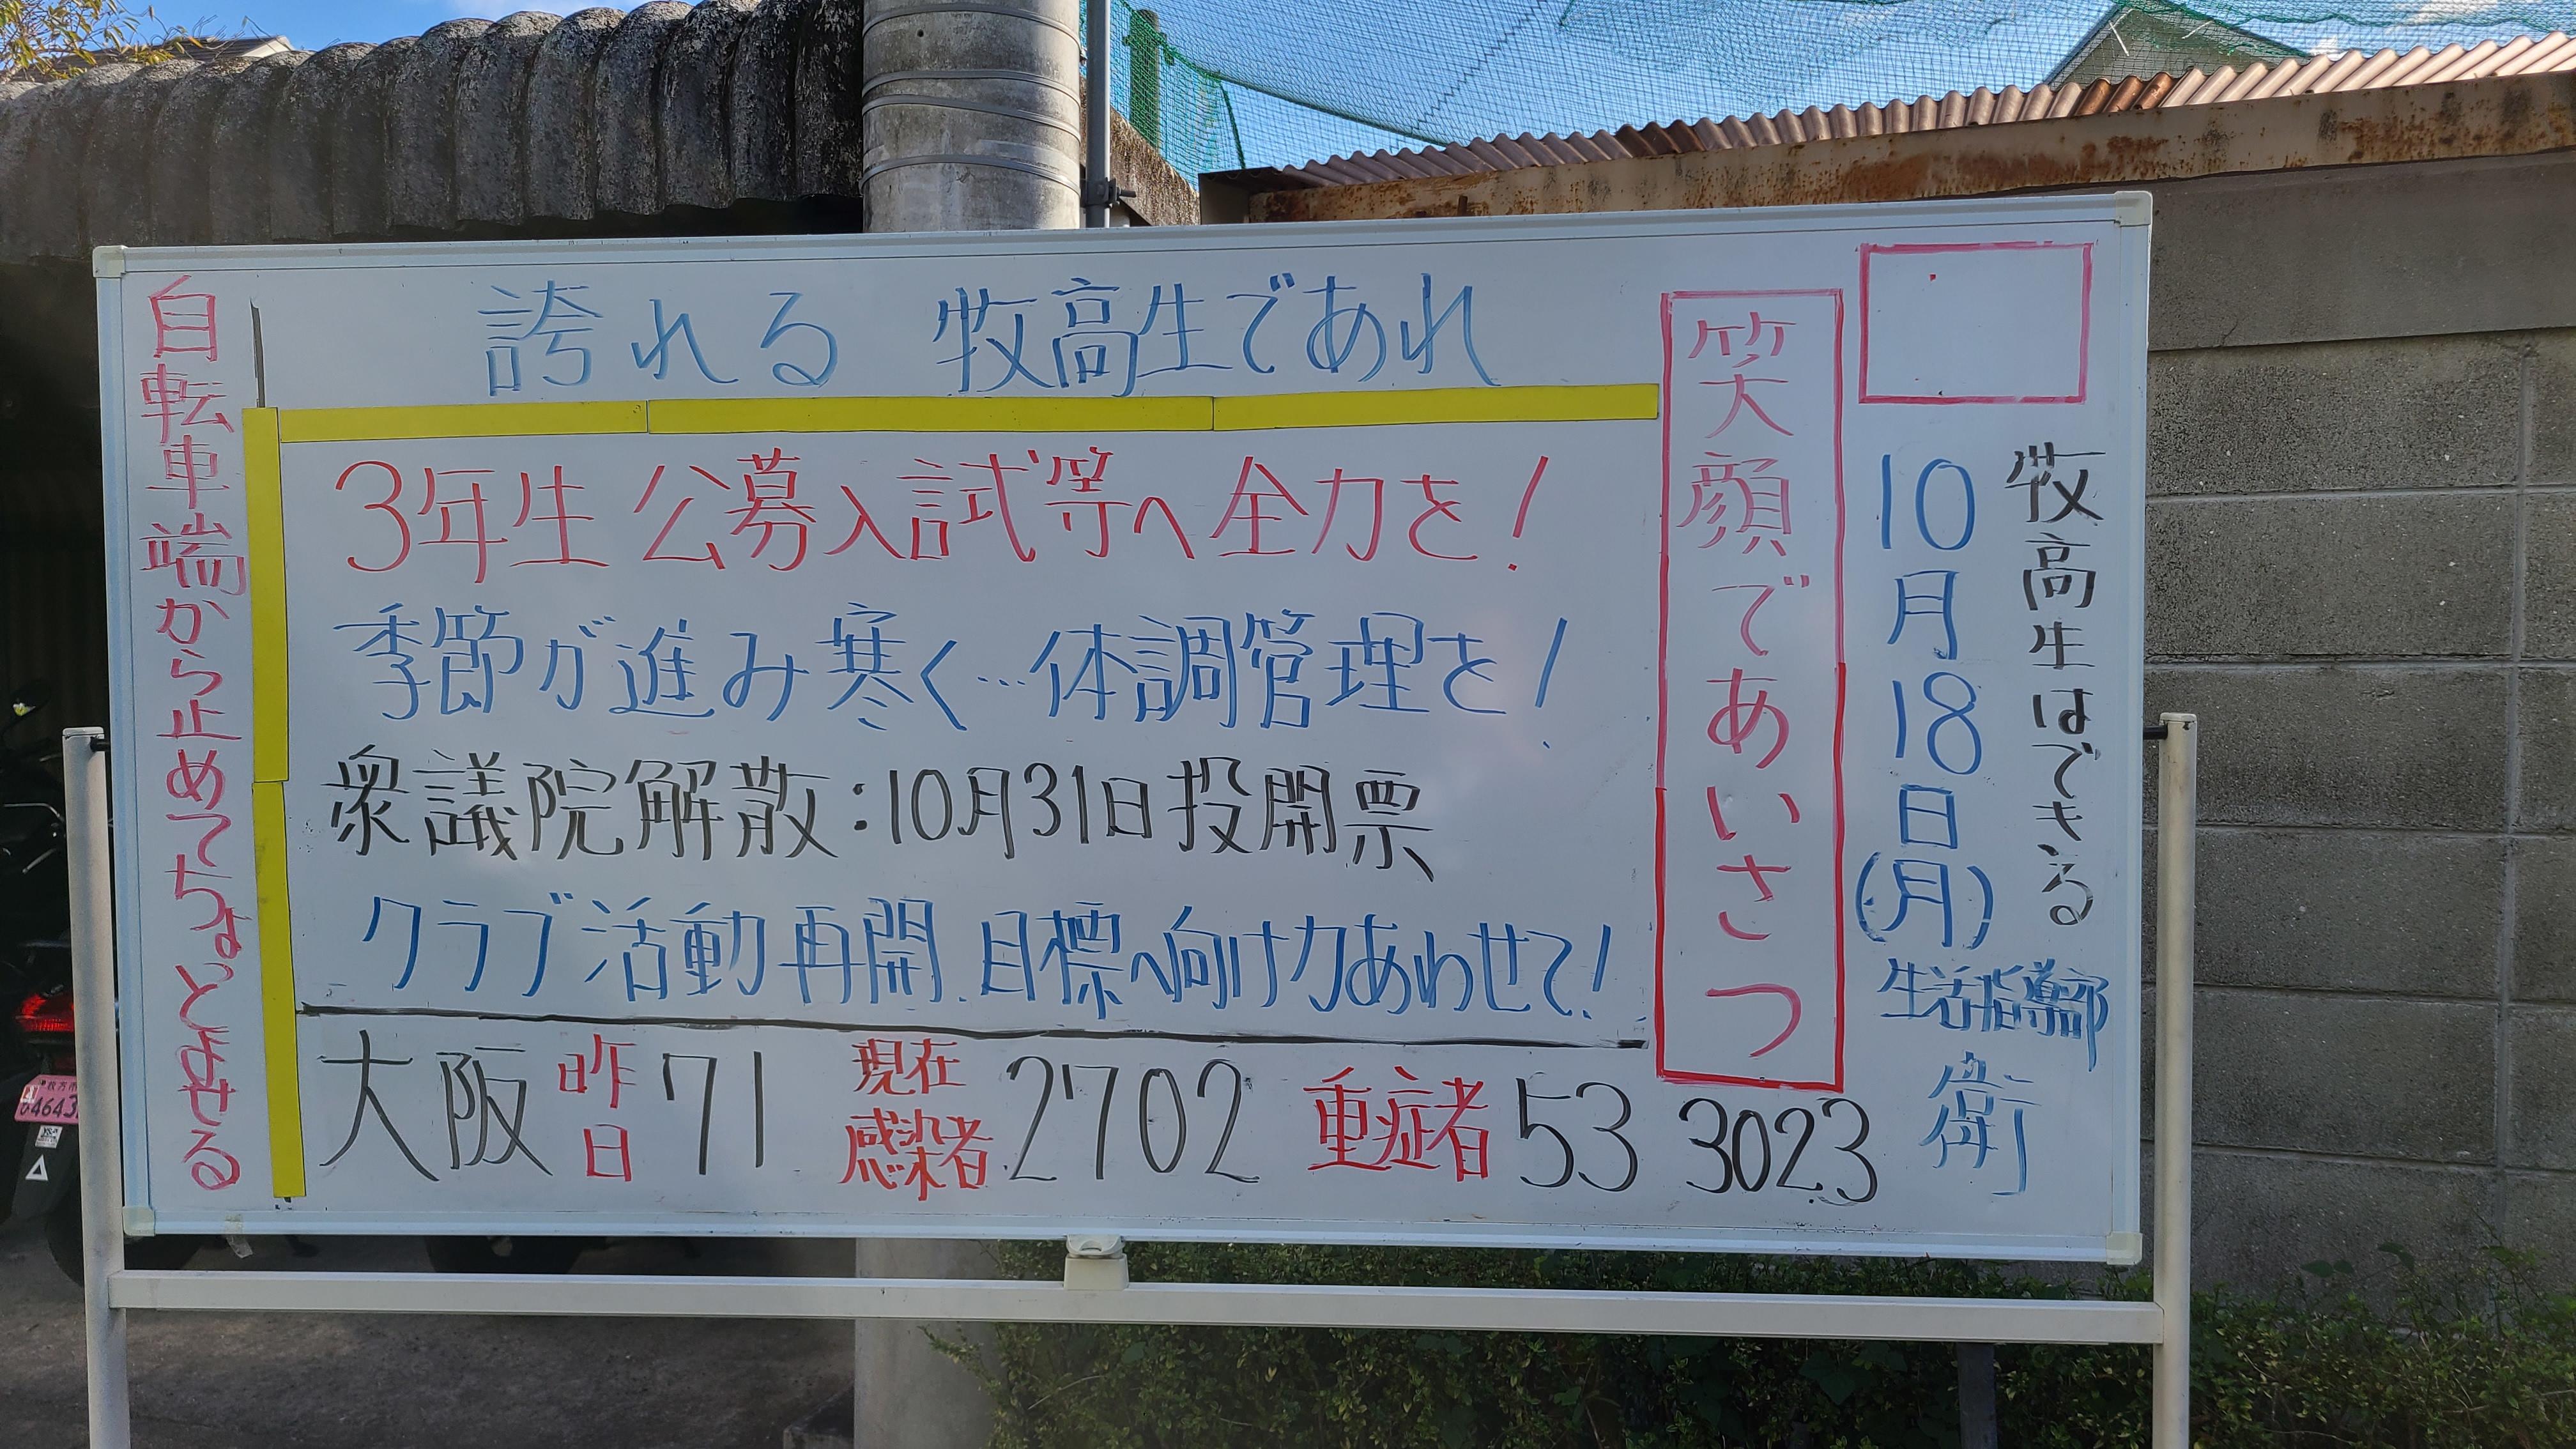 牧高生はできる
10月18日(月)
生活指導部
衛
笑顔であいさつ
誇れる 牧高生であれ
3年生 公募入試等へ全力を!
季節が進み寒く…体調管理を!
衆議院解散:10月31日投開票
クラブ活動再開、目標へ向け力あわせて!
大阪 昨日 71 現在感染者 2702 重症者 53 3023
自転車端から止めてちょとよせる
枚方市
4643